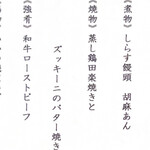 《煮物》しらす饅頭　胡麻あん
《焼物》蒸し鶏田楽焼きと
ズッキーニのバター焼き
《強肴》和牛ローストビーフ